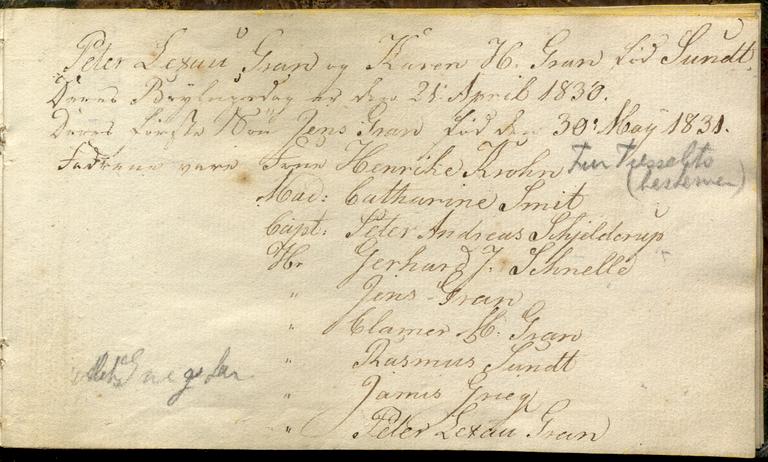 Peter Lexau Gran og Karen H. Gran fød Sundt.
Deres Bryllupsdag er den 21. April 1830.
Deres første Søn Jens Gran fød den 30: May 1831.
Fadderne vare Frue Henrike Krohn
(bestemor)
Mad: Catharine Smit
Capt: Peter Andreas Schjelderup
Hr Gerhard J. Schnelle
" Jens Gran
" Clamer M. Gran
" Rasmus Sundt
" Jamis Grieg
" Peter Lexau Gran